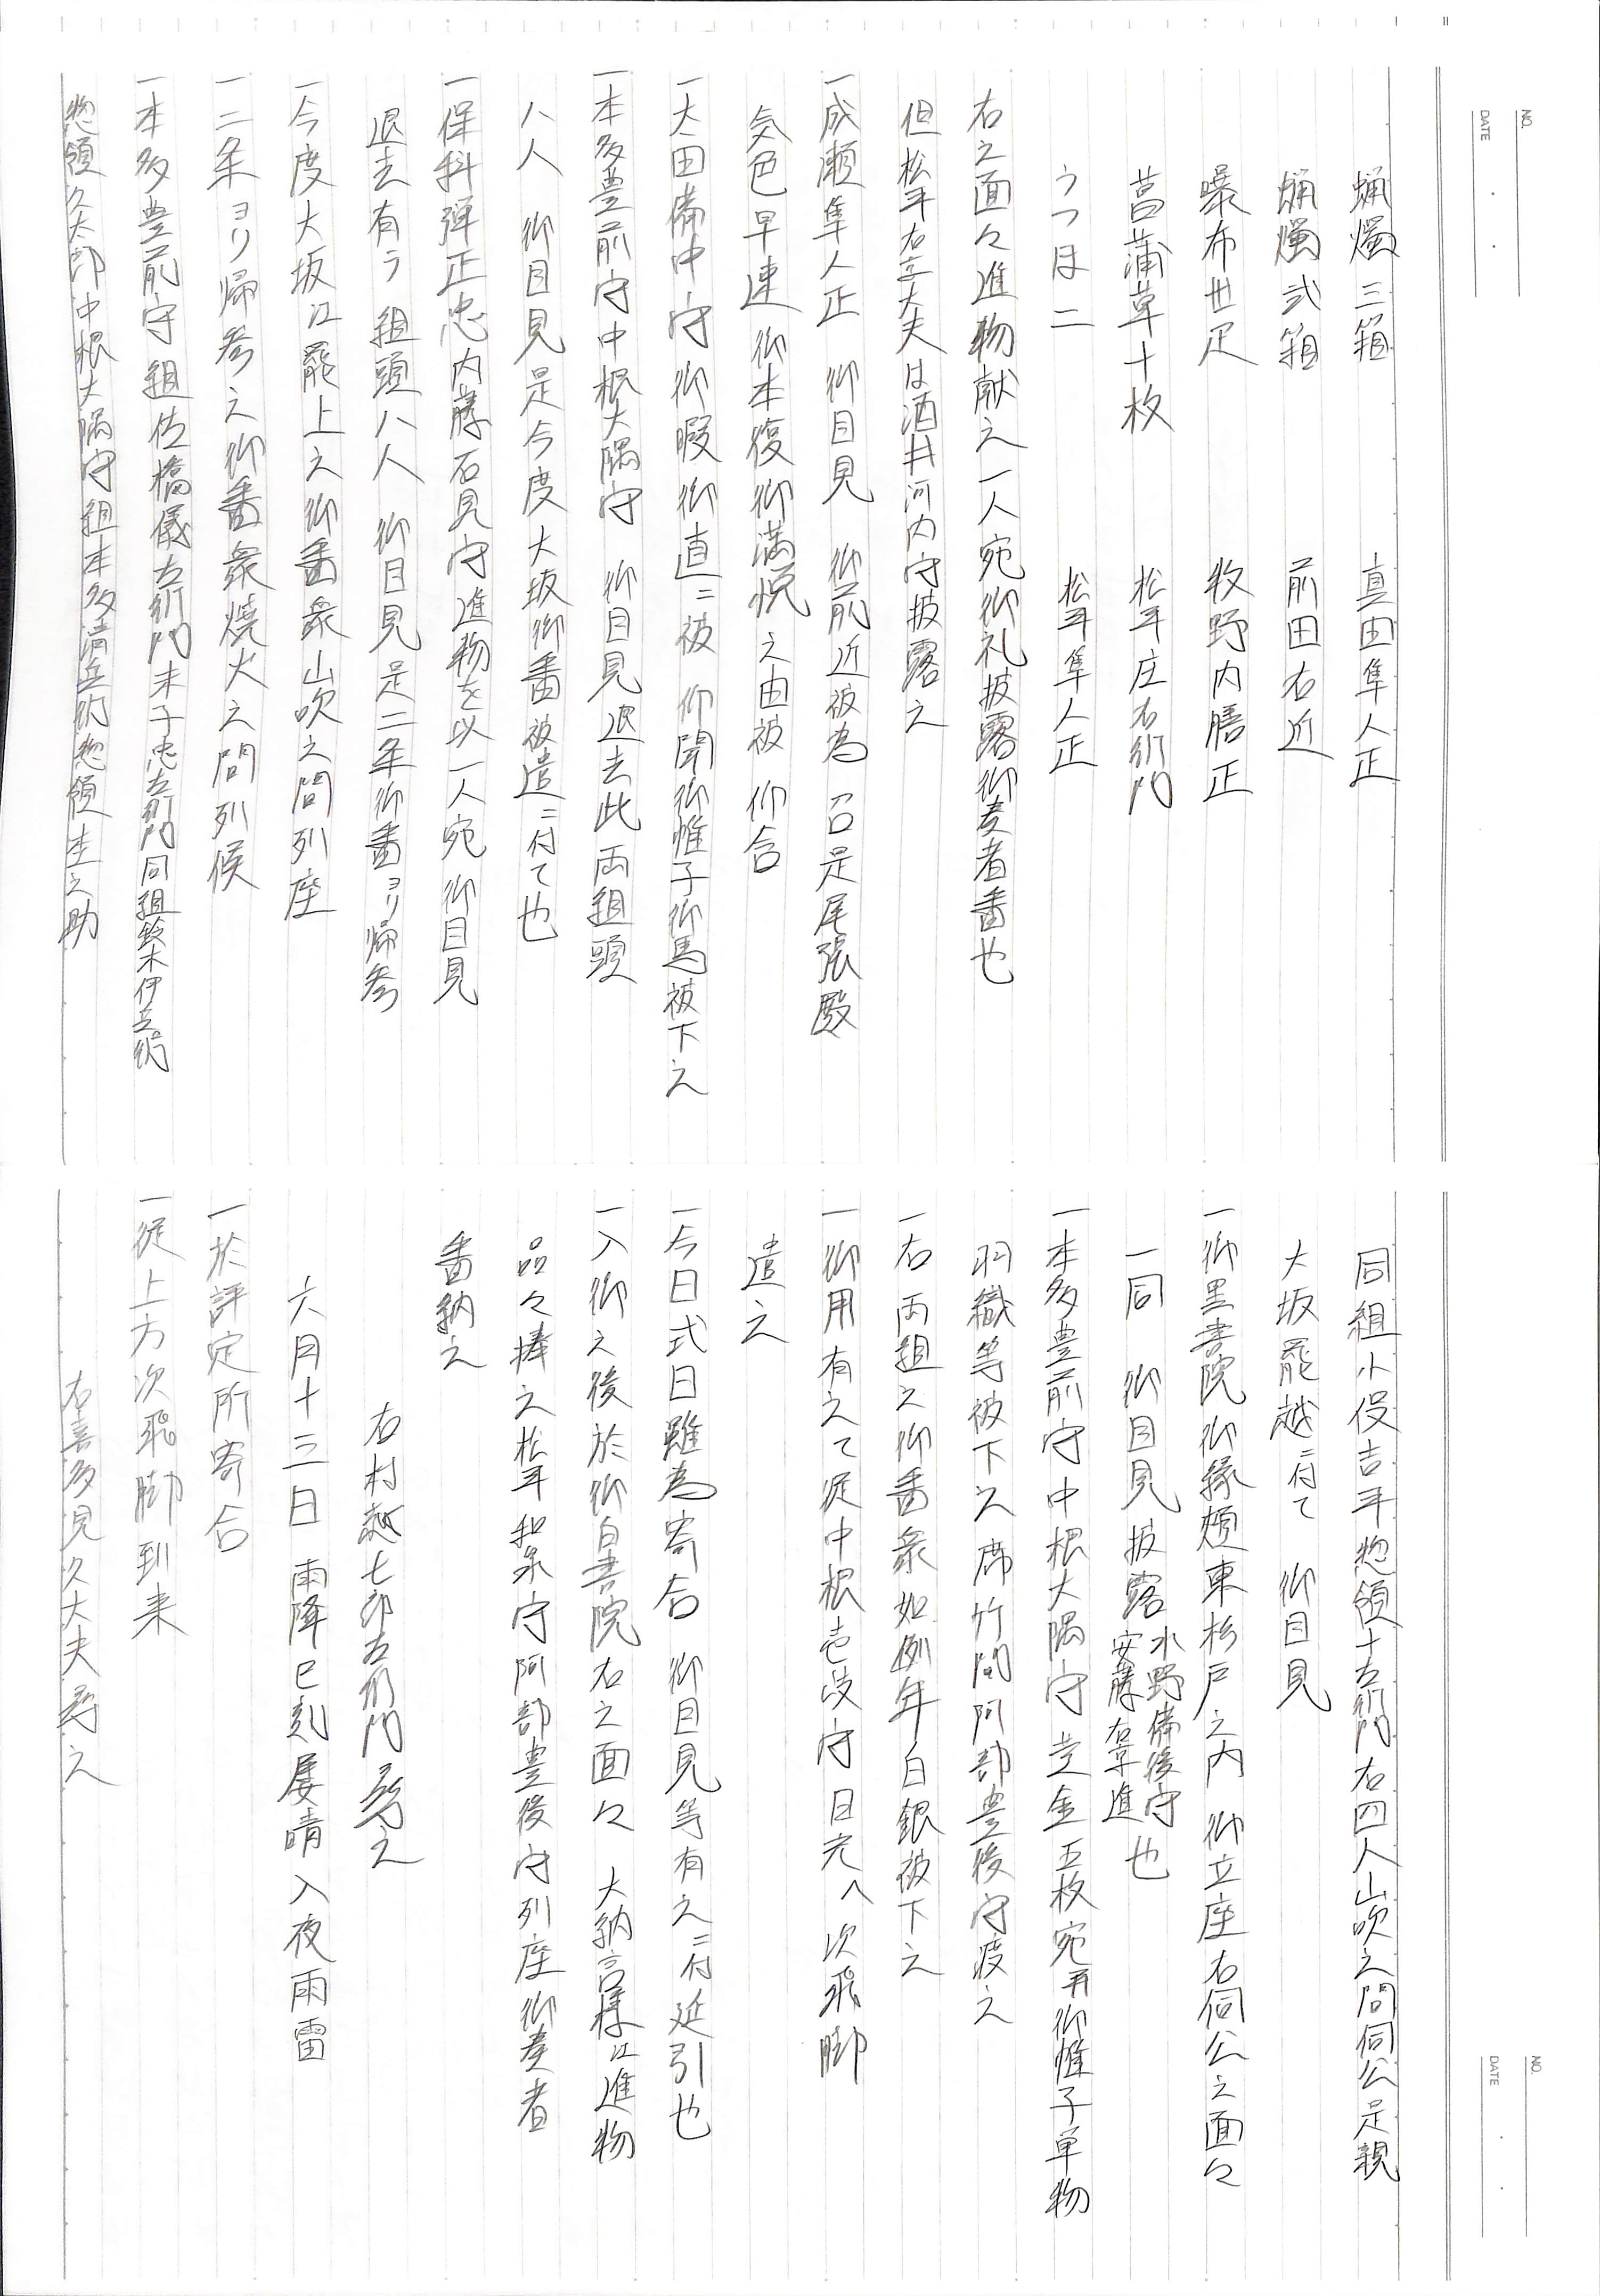 NO.
DATE
蝋燭三箱 真田隼人正
蝋燭弐箱 前田右近
曝布廿疋 牧野内膳正
菖蒲草十枚 松平庄右衛門
うつほ二 松平隼人正
右之面々進物献之一人宛御礼披露御奏者番也
但松平右京大夫は酒井河内守披露之
一成瀬隼人正 御目見 御前近被為 召是尾張殿
気色早速御本復御満悦之由被 仰含
一太田備中守御暇御直ニ被 仰聞御帷子御馬被下之
一本多豊前守中根大隅守 御目見退去此両組頭
八人 御目見是今度大坂御番被遣ニ付て也
一保科弾正忠内藤石見守進物を以一人宛御目見
退去有テ組頭八人 御目見是二年御番ヨリ帰参
一今度大坂江罷上之御番衆山吹之間列座
一二条ヨリ帰参之御番衆焼火之間列候
一本多豊前守組佐橋儀左衛門末子忠左衛門同組鈴木伊兵衛
惣領久太郎中根大隅守組本多清兵衛惣領杢之助
同組小俣吉平惣領十左衛門右四人山吹之間伺公是親
大坂罷越ニ付て 御目見
一御黒書院御縁頬東杉戸之内 御立座右伺公之面々
一同 御目見披露 水野備後守 安藤右京進 也
一本多豊前守中根大隅守 黄金五枚宛并御帷子単物
羽織等被下之席竹間阿部豊後守渡之
一右両組之御番衆如例年白銀被下之
一御用有之て従中根壱岐守日光へ次飛脚
遣之
一今日式日雖為寄合 御目見等有之ニ付延引也
一入御之後於御白書院右之面々 大納言様江進物
品々捧之松平和泉守阿部豊後守列座御奏者
番納之
右村越七郎左衛門尋之
六月十三日 雨降巳刻属晴入夜雨雷
一於評定所寄合
一従上方次飛脚到来
右喜多見久大夫尋之
NO.
DATE